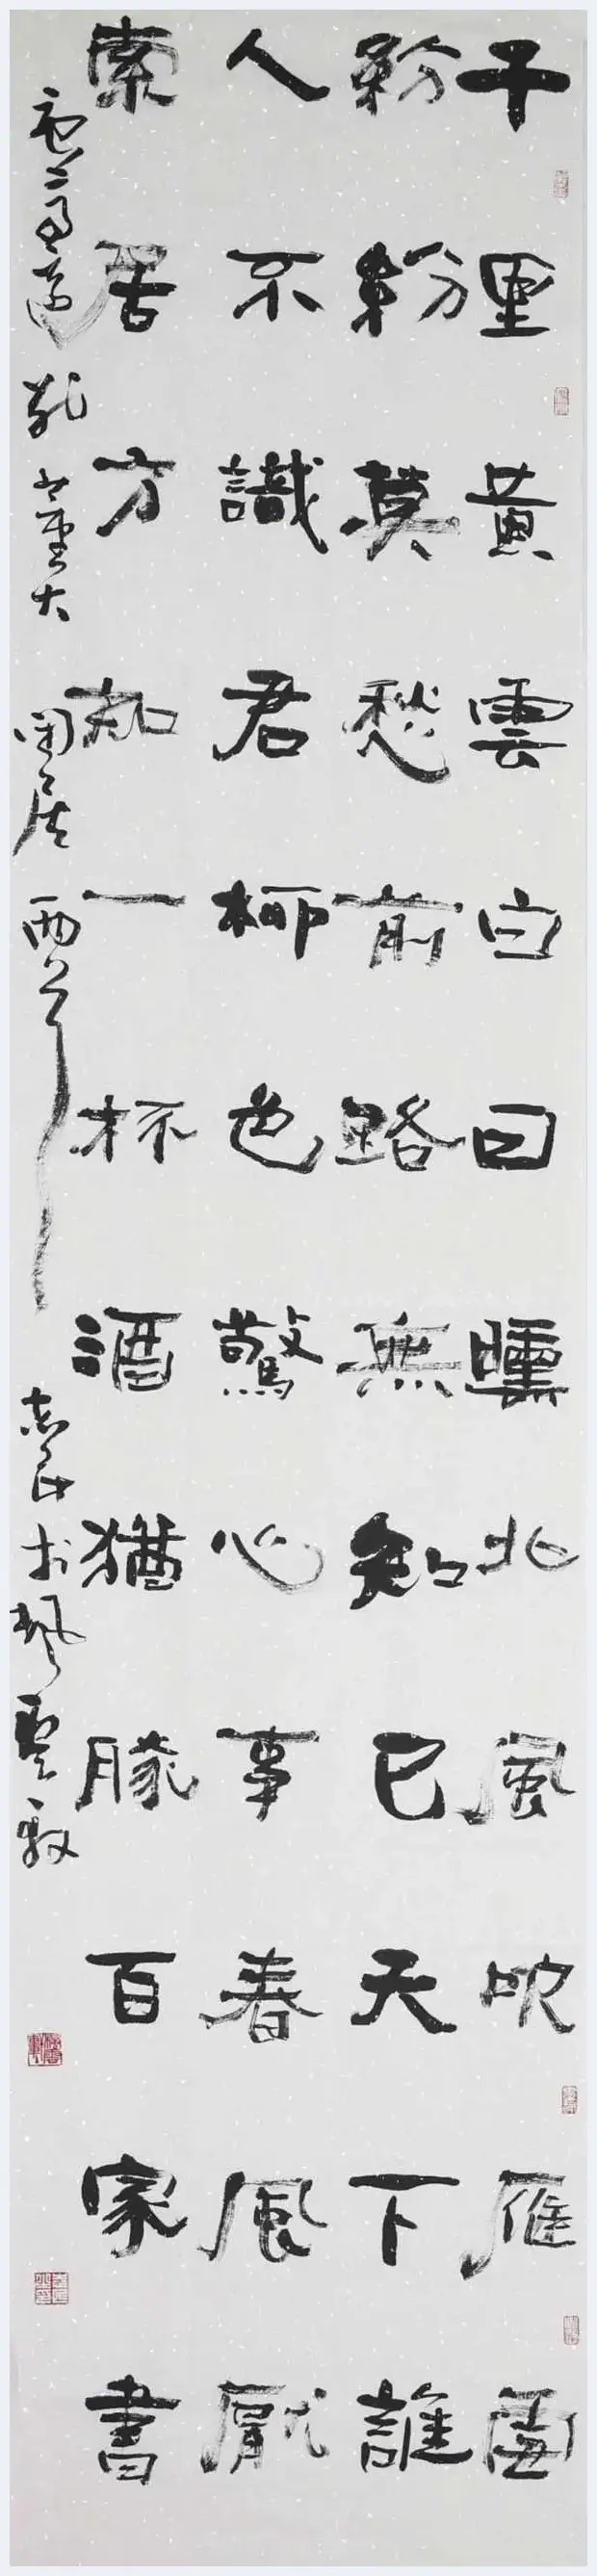 千里黃雲白日曛北風吹雁雪
紛紛莫愁前路無知己天下誰
人不識君柳色驚心事春風厭
索居方知一杯酒猶勝百家書
高適 董大 閑居 兩首 志民